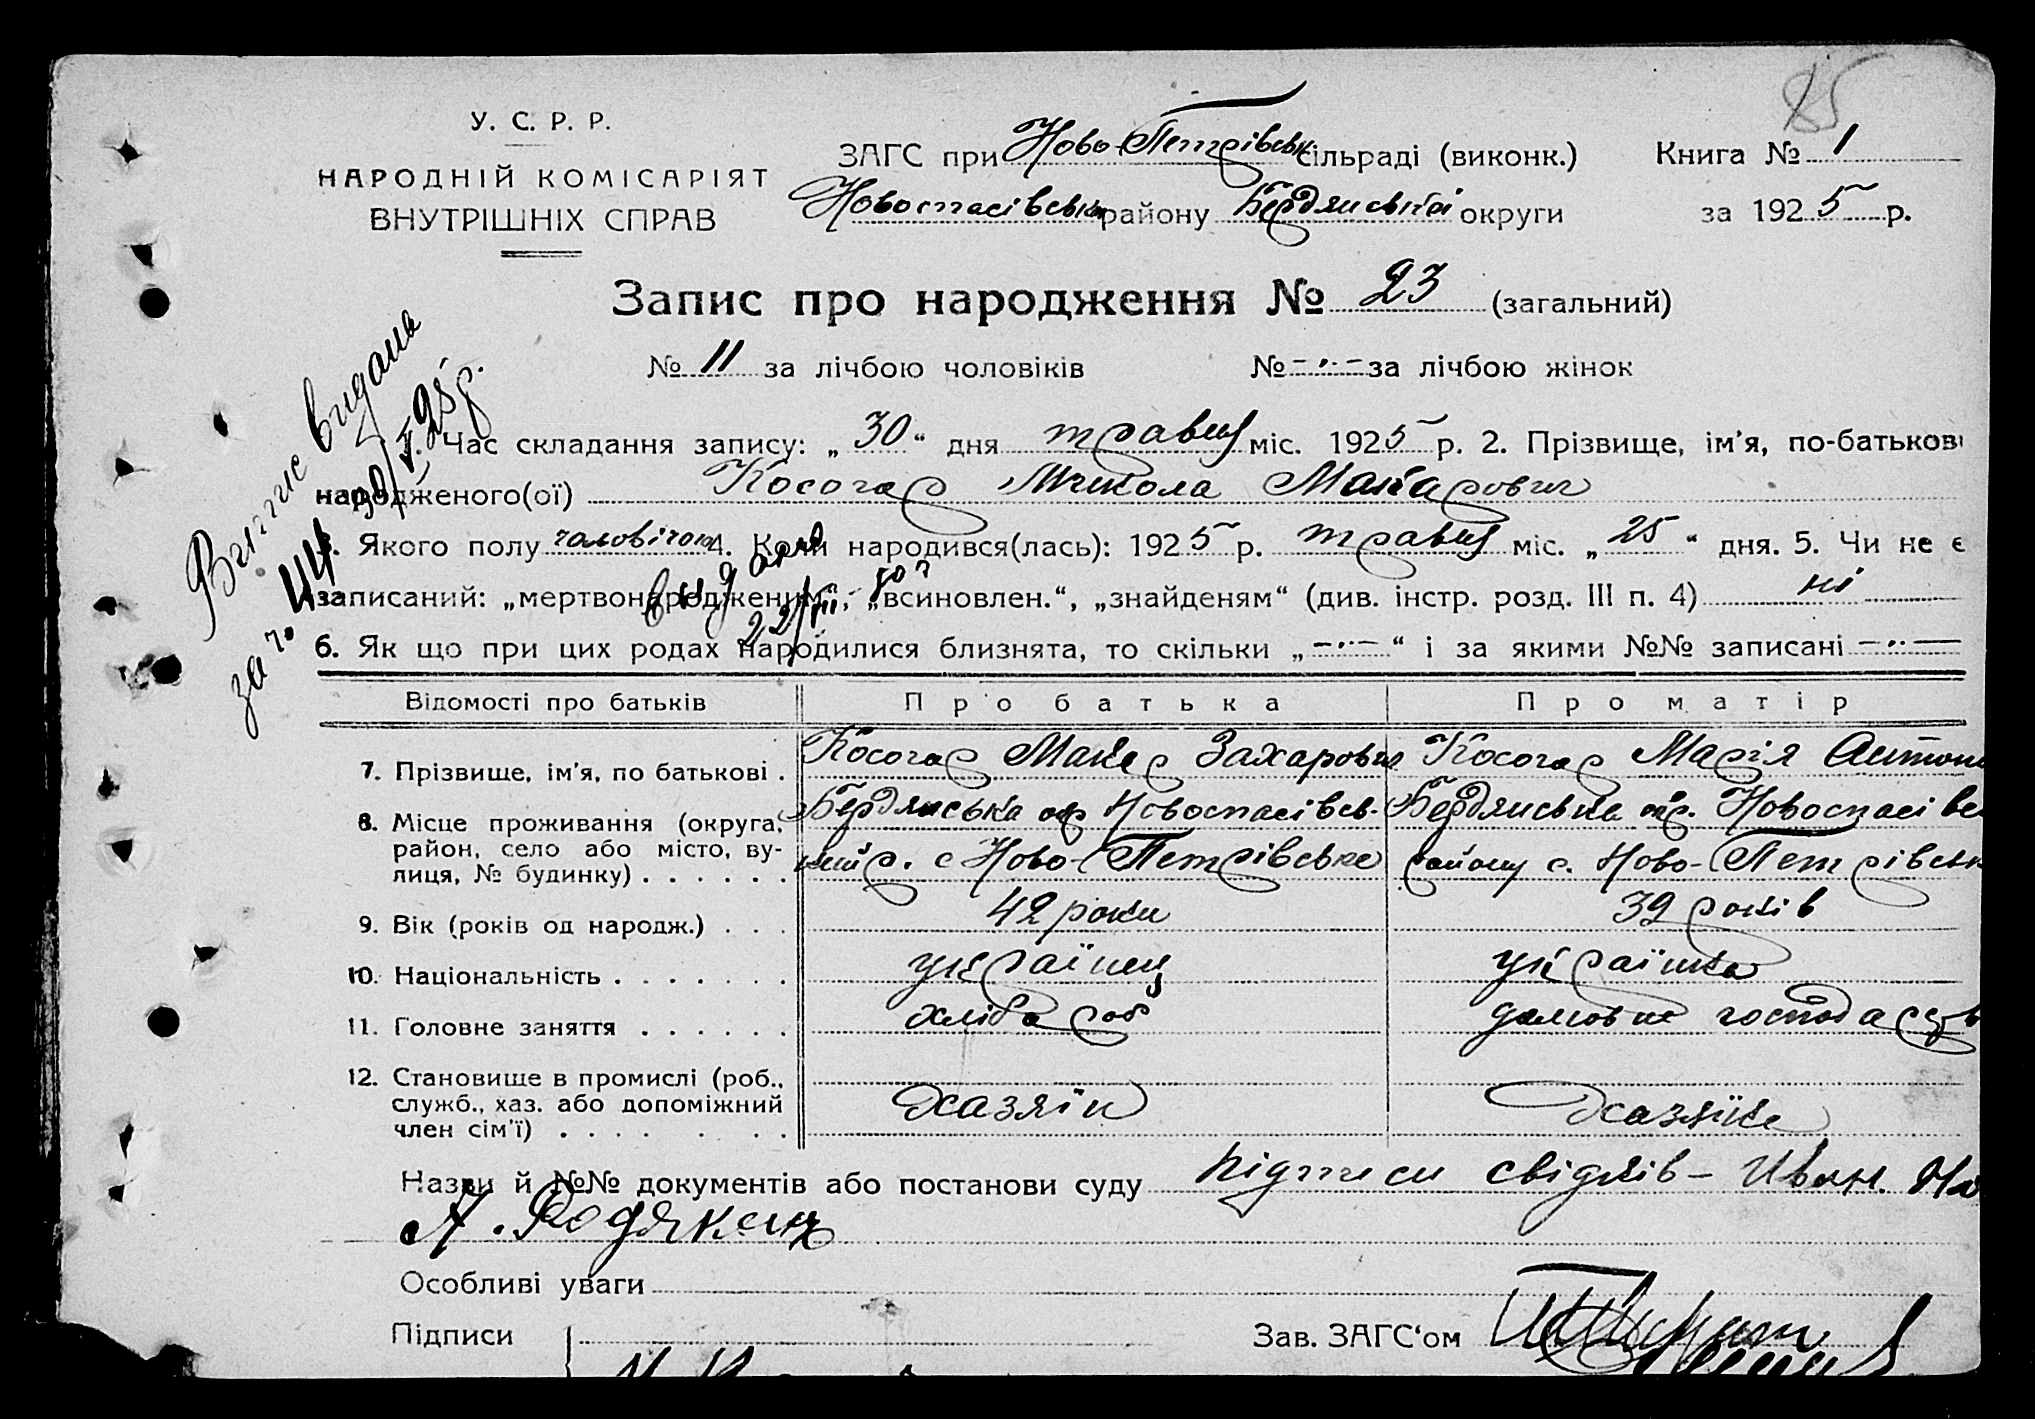 85
У. С. Р. Р.
НАРОДНІЙ КОМІСАРІЯТ
ВНУТРІШНІХ СПРАВ
ЗАГС при Ново-Петрівськ сільраді (виконк.) Книга № 1
Новоспасівськ району Бердянської округи за 1925 р.
Запис про народження № 23 (загальний)
№ 11 за лічбою чоловіків № -"- за лічбою жінок
Час складання запису: „30“ дня травня міс. 1925 р. 2. Прізвище, ім'я, по-батькові
народженого(ої) Косогар Микола Макарович
3. Якого полу чоловічого 4. Коли народився(лась): 1925 р. травня міс. „25“ дня. 5. Чи не є
записаний: „мертвонародженим“, „всиновлен.“, „знайденям“ (див. інстр. розд. III п. 4) ні
6. Як що при цих родах народилися близнята, то скільки „-"-“ і за якими №№ записані -"-
Виписъ видана
за ч. 44 30/V.25 р.
видано
22/VIII
Відомості про батьків Про батька Про матір
7. Прізвище, ім'я, по батькові . Косогар Макар Захарович Косогар Марія Антон
8. Місце проживання (округа, район, село або місто, вулиця, № будинку) . . . . . . Бердянська окр Новоспасівський р. с Ново-Петрівське Бердянська окр. Новоспасівсь району с. Ново-Петрівськ
9. Вік (років од народж.) . . . 42 роки 39 років
10. Національність . . . . . . . українець українка
11. Головне заняття . . . . . . хлібороб домовне господарств
12. Становище в промислі (роб., служб., хаз. або допоміжний член сім'ї) . . . . . . . Хазяїн Хазяйка
Назви й №№ документів або постанови суду Підписи свідків - Иван. На
А. Родякенц
Особливі уваги
Підписи Зав. ЗАГС'ом